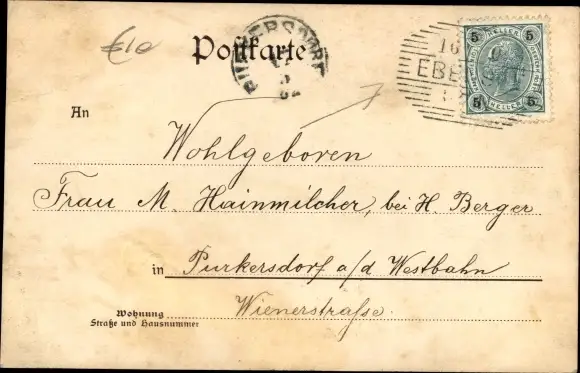 €10
Postkarte
PURKERSDORF
5 HELLER 5
5 HELLER 5
16
EBE
An
Wohlgeboren
Frau M. Hainmilcher, bei H. Berger
in Purkersdorf a/d Westbahn
Wohnung
Straße und Hausnummer
Wienerstrafse.